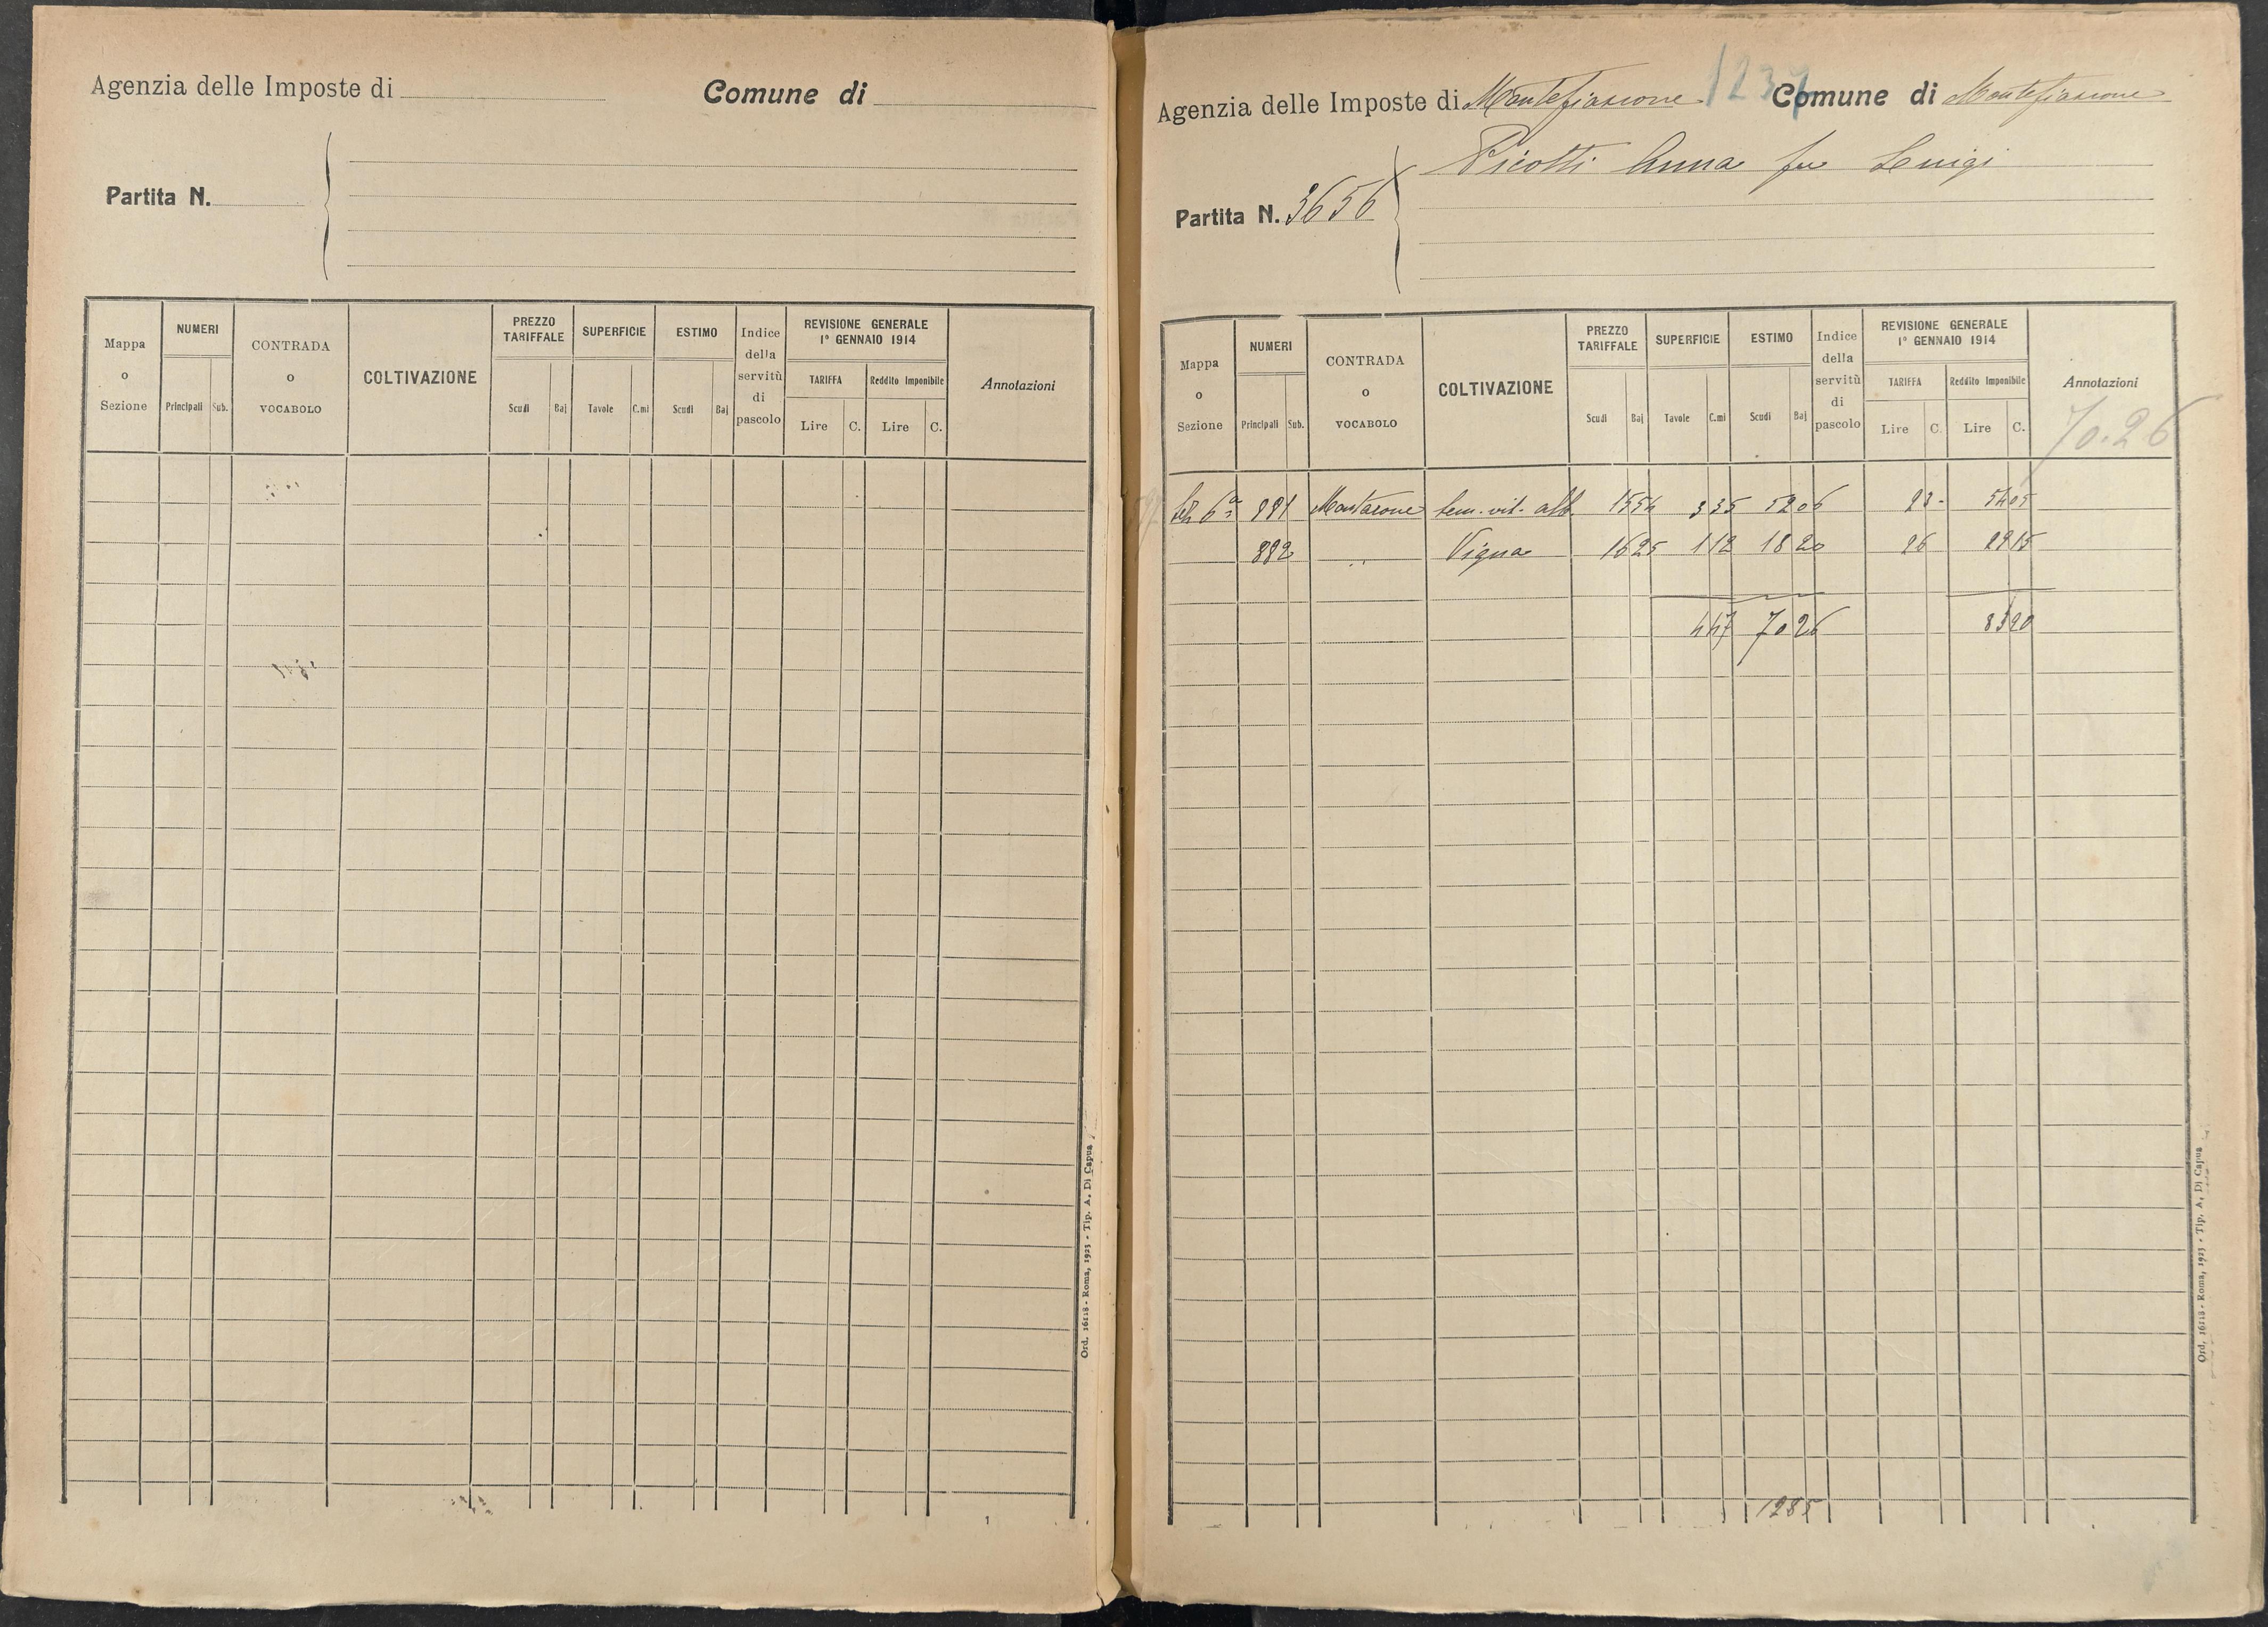 Agenzia delle Imposte di Comune di
Partita N.
Mappa o Sezione NUMERI Principali Sub. CONTRADA o VOCABOLO COLTIVAZIONE PREZZO TARIFFALE Scudi Baj SUPERFICIE Tavole C.mi ESTIMO Scudi Baj Indice della servitù di pascolo REVISIONE GENERALE 1º GENNAIO 1914 TARIFFA Lire C. Reddito Imponibile Lire C. Annotazioni
Ord. 16118 - Roma, 1923 - Tip. A. Di Capua
1
1237
Agenzia delle Imposte di Montefiascone Comune di Montefiascone
Picotti Anna fu Luigi
Partita N. 3656
Mappa o Sezione NUMERI Principali Sub. CONTRADA o VOCABOLO COLTIVAZIONE PREZZO TARIFFALE Scudi Baj SUPERFICIE Tavole C.mi ESTIMO Scudi Baj Indice della servitù di pascolo REVISIONE GENERALE 1º GENNAIO 1914 TARIFFA Lire C. Reddito Imponibile Lire C. Annotazioni
70.26
6ª 891 Montarone sem. vit. alb. 15 54 3 35 52 06 23 - 54 05
892 " Vigna 16 25 1 12 18 20 26 29 15
4 47 70 26 83 20
1285
Ord. 16118 - Roma, 1923 - Tip. A. Di Capua